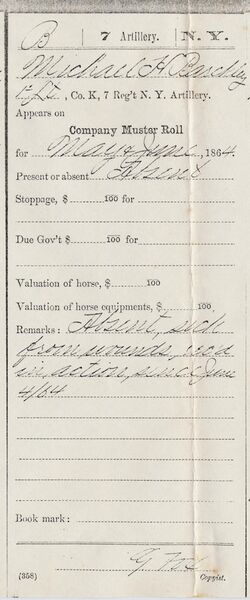 B 7 Artillery. N. Y.
Michael H Barckley
, Co. K, 7 Reg't N. Y. Artillery.
Appears on
Company Muster Roll
for May & June, 1864.
Present or absent Absent
Stoppage, $ 100 for
Due Gov't $ 100 for
Valuation of horse, $ 100
Valuation of horse equipments, $ 100.
Remarks: Absent, sick
from wounds, recd
in action, since June
4/64
Book mark:
(358) Copyist.